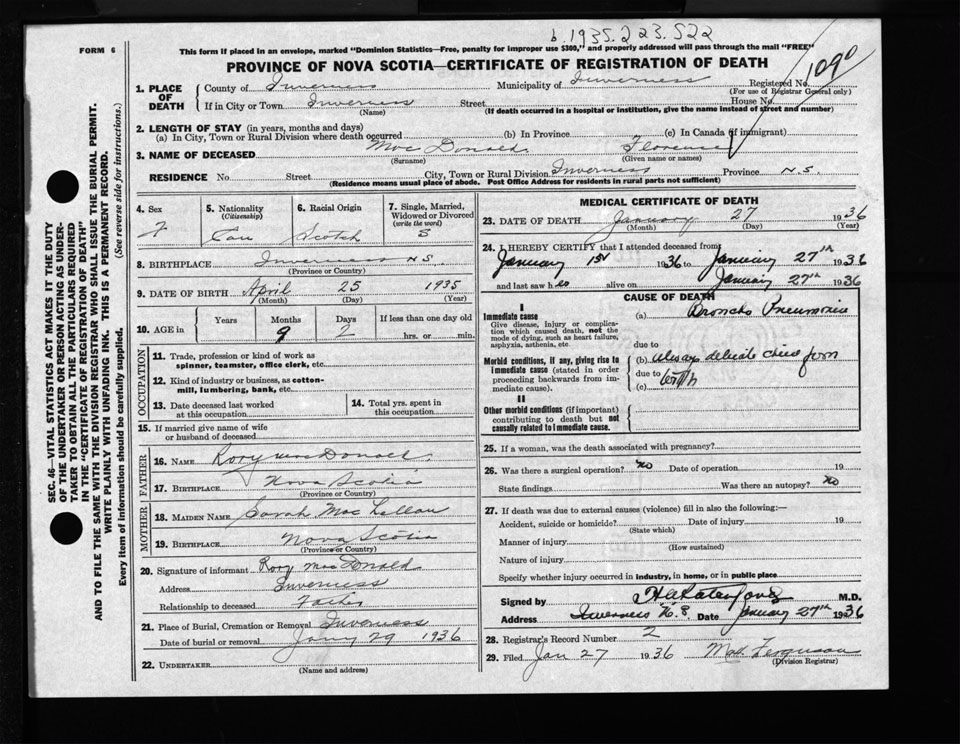 b. 1935. 223. 522
FORM 6
This form if placed in an envelope, marked "Dominion Statistics—Free, penalty for improper use $300," and properly addressed will pass through the mail "FREE"
PROVINCE OF NOVA SCOTIA—CERTIFICATE OF REGISTRATION OF DEATH
1090
1. PLACE OF DEATH
County of Inverness Municipality of Inverness Registered No.
(For use of Registrar General only)
If in City or Town Inverness Street House No.
(Name) (If death occurred in a hospital or institution, give the name instead of street and number)
2. LENGTH OF STAY (in years, months and days)
(a) In City, Town or Rural Division where death occurred (b) In Province (c) In Canada (if immigrant)
3. NAME OF DECEASED Mac Donald Florence
(Surname) (Given name or names)
RESIDENCE No. Street City, Town or Rural Division Inverness Province N.S.
(Residence means usual place of abode. Post Office Address for residents in rural parts not sufficient)
SEC. 46—VITAL STATISTICS ACT MAKES IT THE DUTY
OF THE UNDERTAKER OR PERSON ACTING AS UNDER-
TAKER TO OBTAIN ALL THE PARTICULARS REQUIRED
IN THE "CERTIFICATE OF REGISTRATION OF DEATH"
AND TO FILE THE SAME WITH THE DIVISION REGISTRAR WHO SHALL ISSUE THE BURIAL PERMIT.
WRITE PLAINLY WITH UNFADING INK. THIS IS A PERMANENT RECORD.
Every item of information should be carefully supplied. (See reverse side for instructions.)
4. Sex F
5. Nationality (Citizenship) Can
6. Racial Origin Scotch
7. Single, Married, Widowed or Divorced (write the word) S
8. BIRTHPLACE Inverness N.S.
(Province or Country)
9. DATE OF BIRTH April 25 1935
(Month) (Day) (Year)
10. AGE in Years Months 9 Days 2 If less than one day old hrs. or min.
OCCUPATION
11. Trade, profession or kind of work as spinner, teamster, office clerk, etc.
12. Kind of industry or business, as cotton-mill, lumbering, bank, etc.
13. Date deceased last worked at this occupation
14. Total yrs. spent in this occupation
15. If married give name of wife or husband of deceased
FATHER
16. NAME Rory MacDonald
17. BIRTHPLACE Nova Scotia
(Province or Country)
MOTHER
18. MAIDEN NAME Sarah Mac Lellan
19. BIRTHPLACE Nova Scotia
(Province or Country)
20. Signature of informant Rory MacDonald
Address Inverness
Relationship to deceased Father
21. Place of Burial, Cremation or Removal Inverness
Date of burial or removal Jany 29 1936
22. UNDERTAKER
(Name and address)
MEDICAL CERTIFICATE OF DEATH
23. DATE OF DEATH January 27 1936
(Month) (Day) (Year)
24. I HEREBY CERTIFY that I attended deceased from
January 1st 1936 to January 27th 1936
and last saw her alive on January 27th 1936
CAUSE OF DEATH
I
Immediate cause
Give disease, injury or complication which caused death, not the mode of dying, such as heart failure, asphyxia, asthenia, etc.
(a) Broncho Pneumonia
due to
Morbid conditions, if any, giving rise to immediate cause (stated in order proceeding backwards from immediate cause).
(b) always delicate child from
due to birth
(c)
II
Other morbid conditions (if important) contributing to death but not causally related to immediate cause.
25. If a woman, was the death associated with pregnancy?
26. Was there a surgical operation? no Date of operation 19
State findings Was there an autopsy? no
27. If death was due to external causes (violence) fill in also the following:—
Accident, suicide or homicide? Date of injury 19
(State which)
Manner of injury
(How sustained)
Nature of injury
Specify whether injury occurred in industry, in home, or in public place
Signed by M.D.
Address Inverness N.S. Date January 27th 1936
28. Registrar's Record Number 2
29. Filed Jan 27 1936 Ferguson
(Division Registrar)